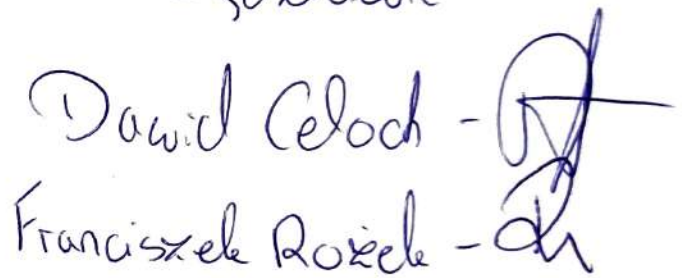 Dawid Celoch -
Franciszek Rożek -